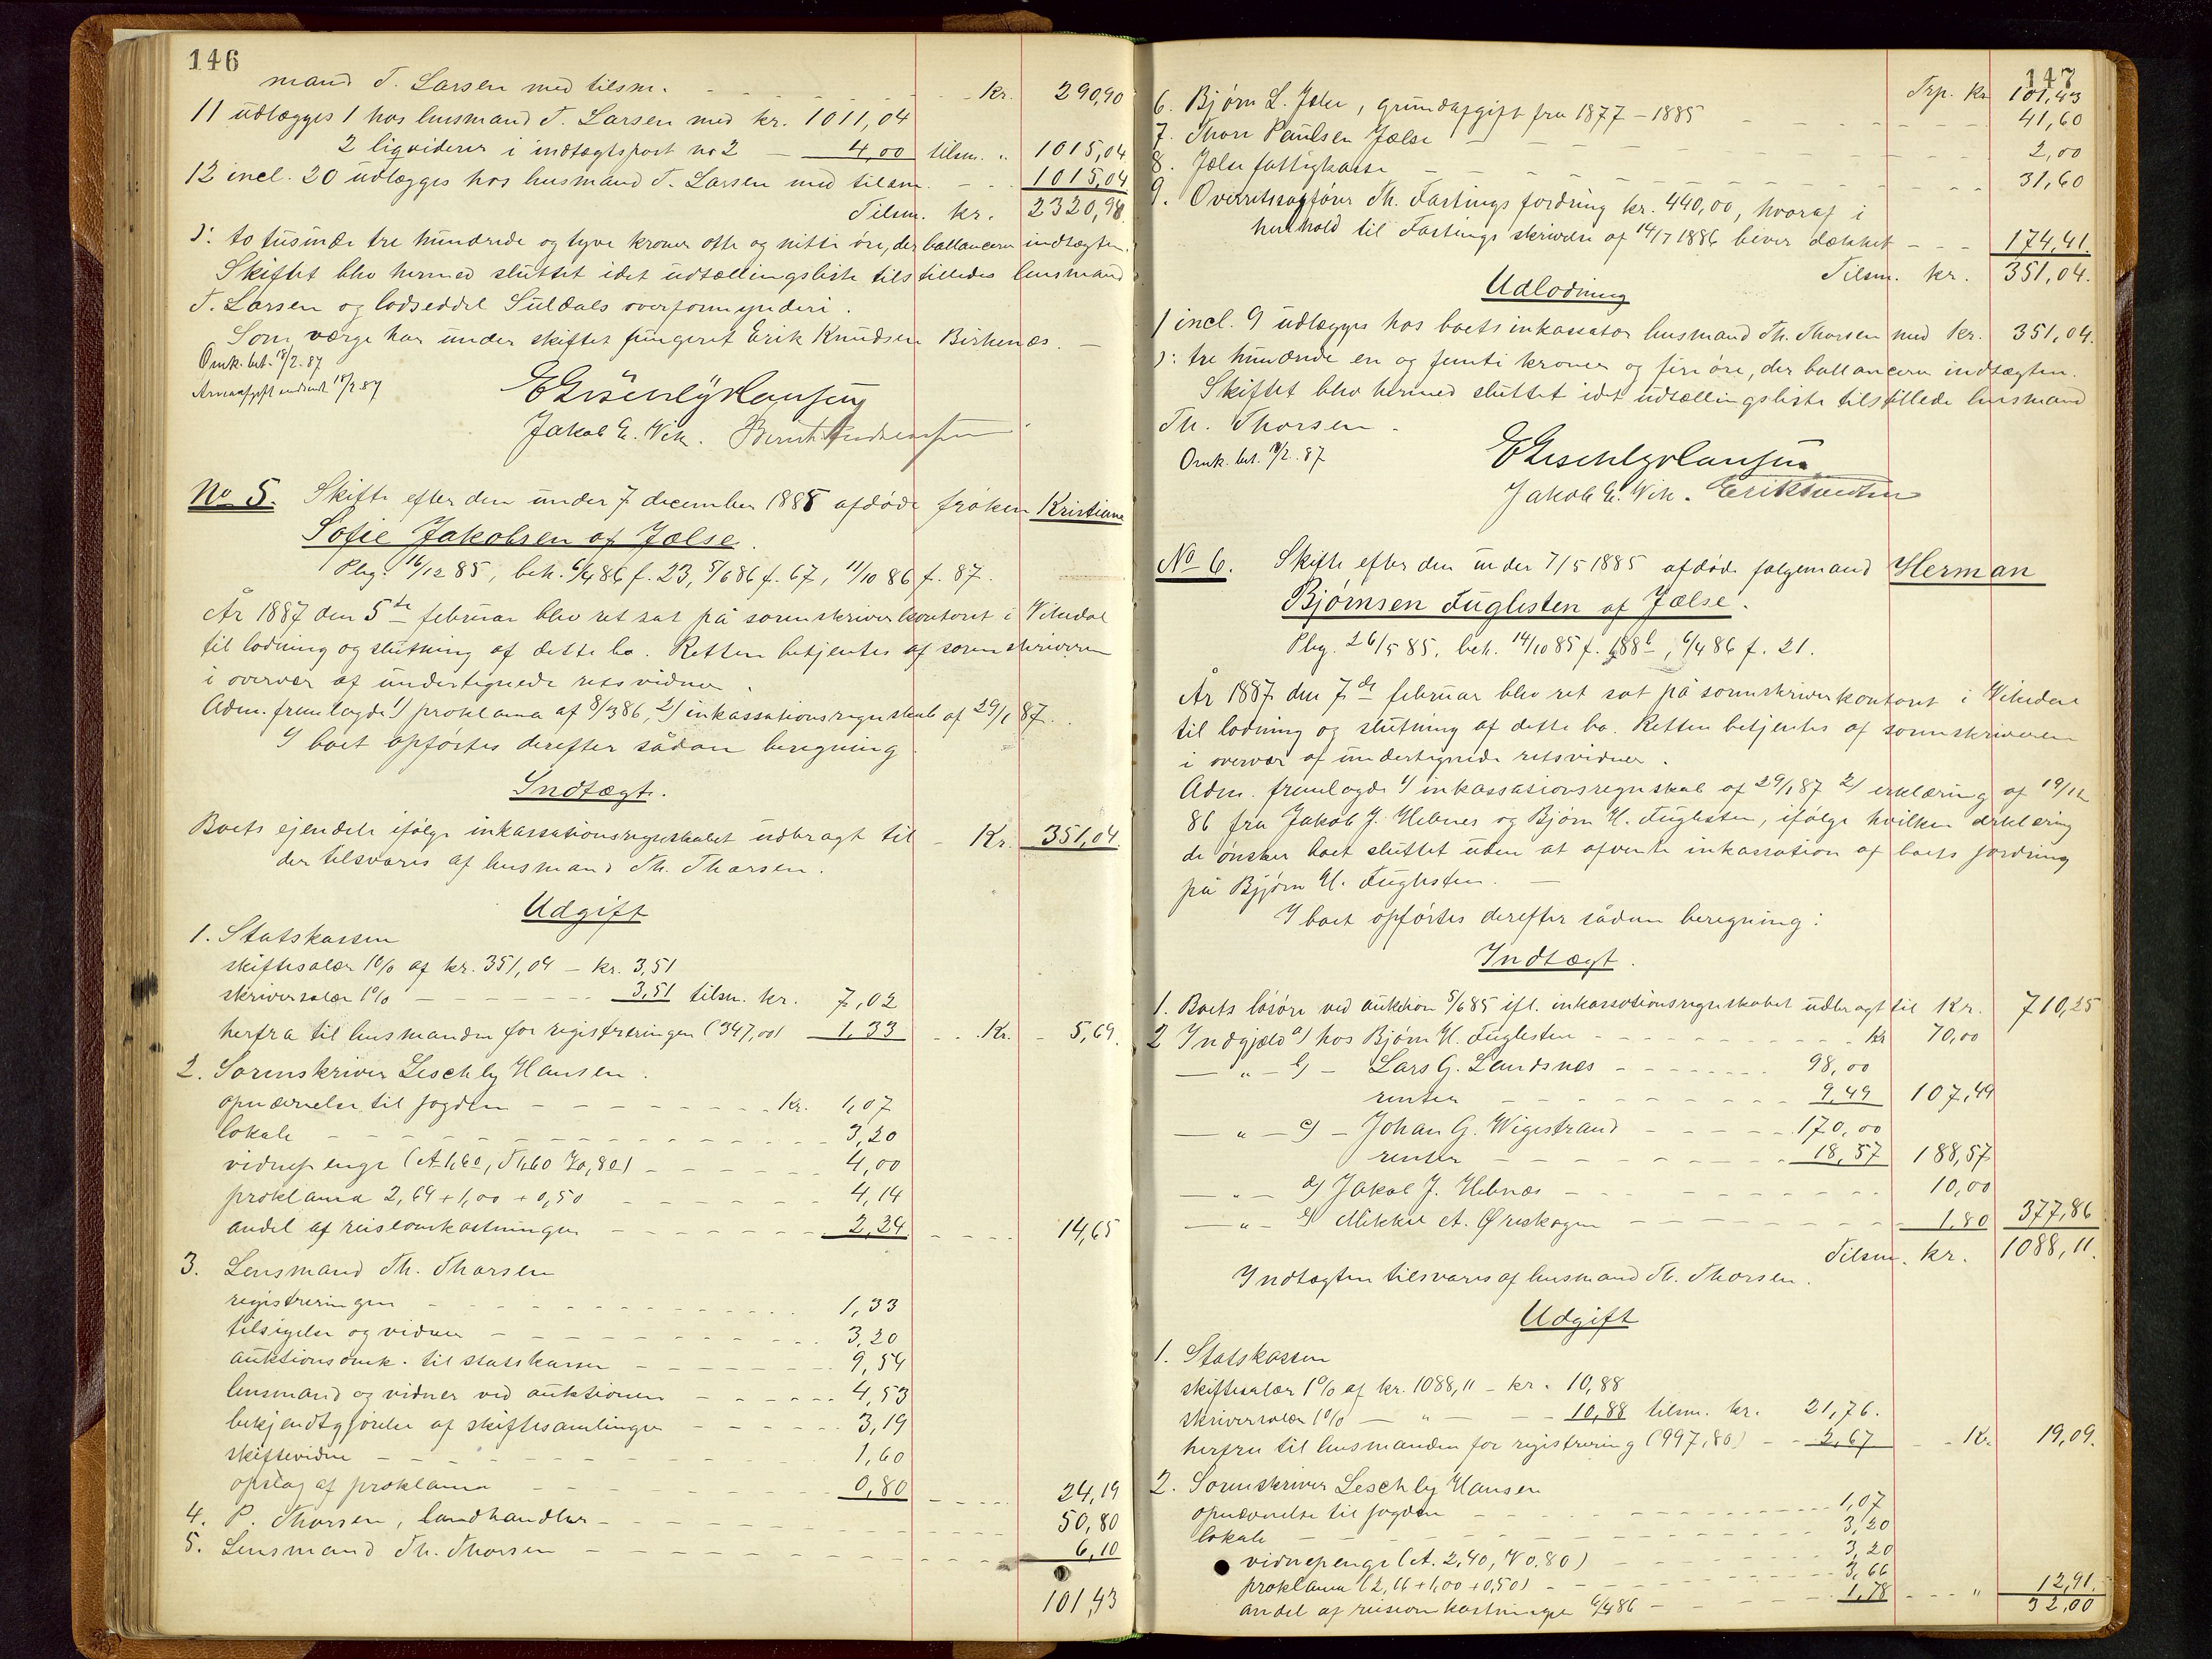 146
mand T. Larsen med tilsm. - - - - - - - Kr. 290,90
11 udlægges 1 hos lensmand T. Larsen med kr. 1011,04
2 liqviderer i indtægtspost no 2 — 4,00 tilsm. " 1015,04
12 incl. 20 udlægges hos lensmand T. Larsen med tilsm. - - 1015,04
Tilsm. kr. 2320,98
ɔ: to tusinde tre hundrede og tyve kroner otte og nitti øre, der ballancerer indtægten.
Skiftet blev hermed sluttet idet udtællingsliste tilstilledes lensmand
T. Larsen og lodseddel Suldals overformynderi.
Som værge har under skiftet fungeret Erik Knudsen Birkenæs. —
Omk. bet. 18/2. 87
Arveafgift indsendt 18/2 87
E Leschly Hansen
Jakob E. Vik. Bernt
No 5. Skifte efter den under 7 december 1885 afdøde frøken Kristiane
Sofie Jakobsen af Jælse.
Pbg. 16/12 85, beh. 6/4 86 f. 23, 5/6 86 f. 67, 11/10 86 f. 87.
År 1887 den 5te februar blev ret sat på sorenskriverkontoret i Vikedal
til lodning og slutning af dette bo. Retten betjentes af sorenskriveren
i overvær af undertegnede retsvidner.
Adm. fremlagde 1) proklama af 8/3 86, 2) inkassationsregnskab af 29/1 87.
I boet opførtes derefter sådan beregning
Indtægt.
Boets ejendele ifølge inkassationsregnskabet udbragt til - Kr. 351,04.
der tilsvares af lensmand Th. Thorsen.
Udgift
1. Statskassen
skiftesalær 1% af kr. 351,04 — kr. 3,51
skriversalær 1% — - - - - - - 3,51 tilsm. kr. 7,02
herfra til lensmanden for registreringen (347,00) 1,33 - - Kr. - 5,69.
2. Sorenskriver Leschly Hansen.
opnævnelse til fogden - - - - - - - - Kr. 1,07
lokale - - - - - - - - - - - - 3,20
vidnepenge (A 1,60, T 1,60 V 0,80) - - - - - - 4,00
proklama 2,64 + 1,00 + 0,50 - - - - - - - 4,14
andel af reiseomkostninger - - - - - - - 2,24. - - - - 14,65
3. Lensmand Th. Thorsen
registreringen - - - - - - - - - - - 1,33
tilsigelse og vidner - - - - - - - - - - 3,20
auktionsomk. til statskassen - - - - - - - 9,54
lensmand og vidner ved auktionen - - - - - 4,53
bekjendtgjørelse af skiftesamlinger - - - - - 3,19
skiftevidne - - - - - - - - - - - - 1,60
opslag af proklama - - - - - - - - - 0,80 - - - - 24,19
4. P. Thorsen, landhandler - - - - - - - - - - - 50,80
5. Lensmand Th. Thorsen - - - - - - - - - - - - 6,10
101,43
147
Trp. Kr 101,43
6. Bjørn L. Jelse, grundafgift fra 1877 - 1885 - - - - - - 41,60
7. Thore Paulsen Jælse - - - - - - - - - - - 2,00
8. Jælse fattigkasse - - - - - - - - - - - - 31,60
9. Overretssagfører Th. Fastings fordring kr. 440,00, hvoraf i
henhold til Fastings skrivelse af 14/7 1886 bliver dækket - - - 174,41.
Tilsm. kr. 351,04.
Udlodning
1 incl. 9 udlægges hos boets inkassator lensmand Th. Thorsen med kr. 351,04.
ɔ: tre hundrede en og femti kroner og fire øre, der ballancerer indtægten.
Skiftet blev hermed sluttet idet udtællingsliste tilstillede lensmand
Th. Thorsen.
Omk. bet. 18/2. 87
E Leschly Hansen
Jakob E. Vik. Erik Knudsen
No 6. Skifte efter den under 7/5 1885 afdøde følgemand Herman
Bjørnsen Fuglesten af Jælse.
Pbg. 26/5 85, beh. 14/10 85 f. 188b, 6/4 86 f. 21.
År 1887 den 7de februar blev ret sat på sorenskriverkontoret i Vikedal
til lodning og slutning af dette bo. Retten betjentes af sorenskriveren
i overvær af undertegnede retsvidner.
Adm. fremlagde 1) inkassationsregnskab af 29/1 87 2) erklæring af 19/12
86 fra Jakob J. Hebnes og Bjørn H. Fuglesten, ifølge hvilken erklæring
de ønsker boet sluttet uden at afvente inkassation af boets fordring
på Bjørn H. Fuglesten. —
I boet opførtes derefter sådan beregning:
Indtægt.
1. Boets løsøre ved auktion 5/6 85 ifl. inkassationsregnskabet udbragt til Kr. 710,25
2 Indgjæld a) hos Bjørn H. Fuglesten - - - - - - - - - kr 70,00
— " — b) — Lars G. Landsnæs - - - - - - - 98,00
renter - - - - - - - - - 9,49 107,49
— " — c) — Johan G. Wigestrand - - - - - 170,00
renter - - - - - - - - - 18,57 188,57
— " — d) Jakob J. Hebnæs - - - - - - - - - 10,00
— " — e) Mikkel A. Øreskogen - - - - - - - - 1,80 377,86
Tilsm. kr. 1088,11.
Indtægten tilsvares af lensmand Th. Thorsen.
Udgift
1. Statskassen
skiftesalær 1% af kr. 1088,11 — kr. 10,88
skriversalær 1% — " — - - 10,88 tilsm. kr. 21,76.
herfra til lensmanden for registrering (997,80) - - 2,67 - - K. 19,09.
2. Sorenskriver Leschly Hansen
opnævnelse til fogden - - - - - - - - - 1,07
lokale - - - - - - - - - - - - 3,20
vidnepenge (A. 2,40, V 0.80) - - - - - - - 3,20
proklama (2,16 + 1,00 + 0,50) - - - - - - - 3,66
andel af reiseomkostninger 6/4 86 - - - - - 1,78 - - - " 12,91.
32,00